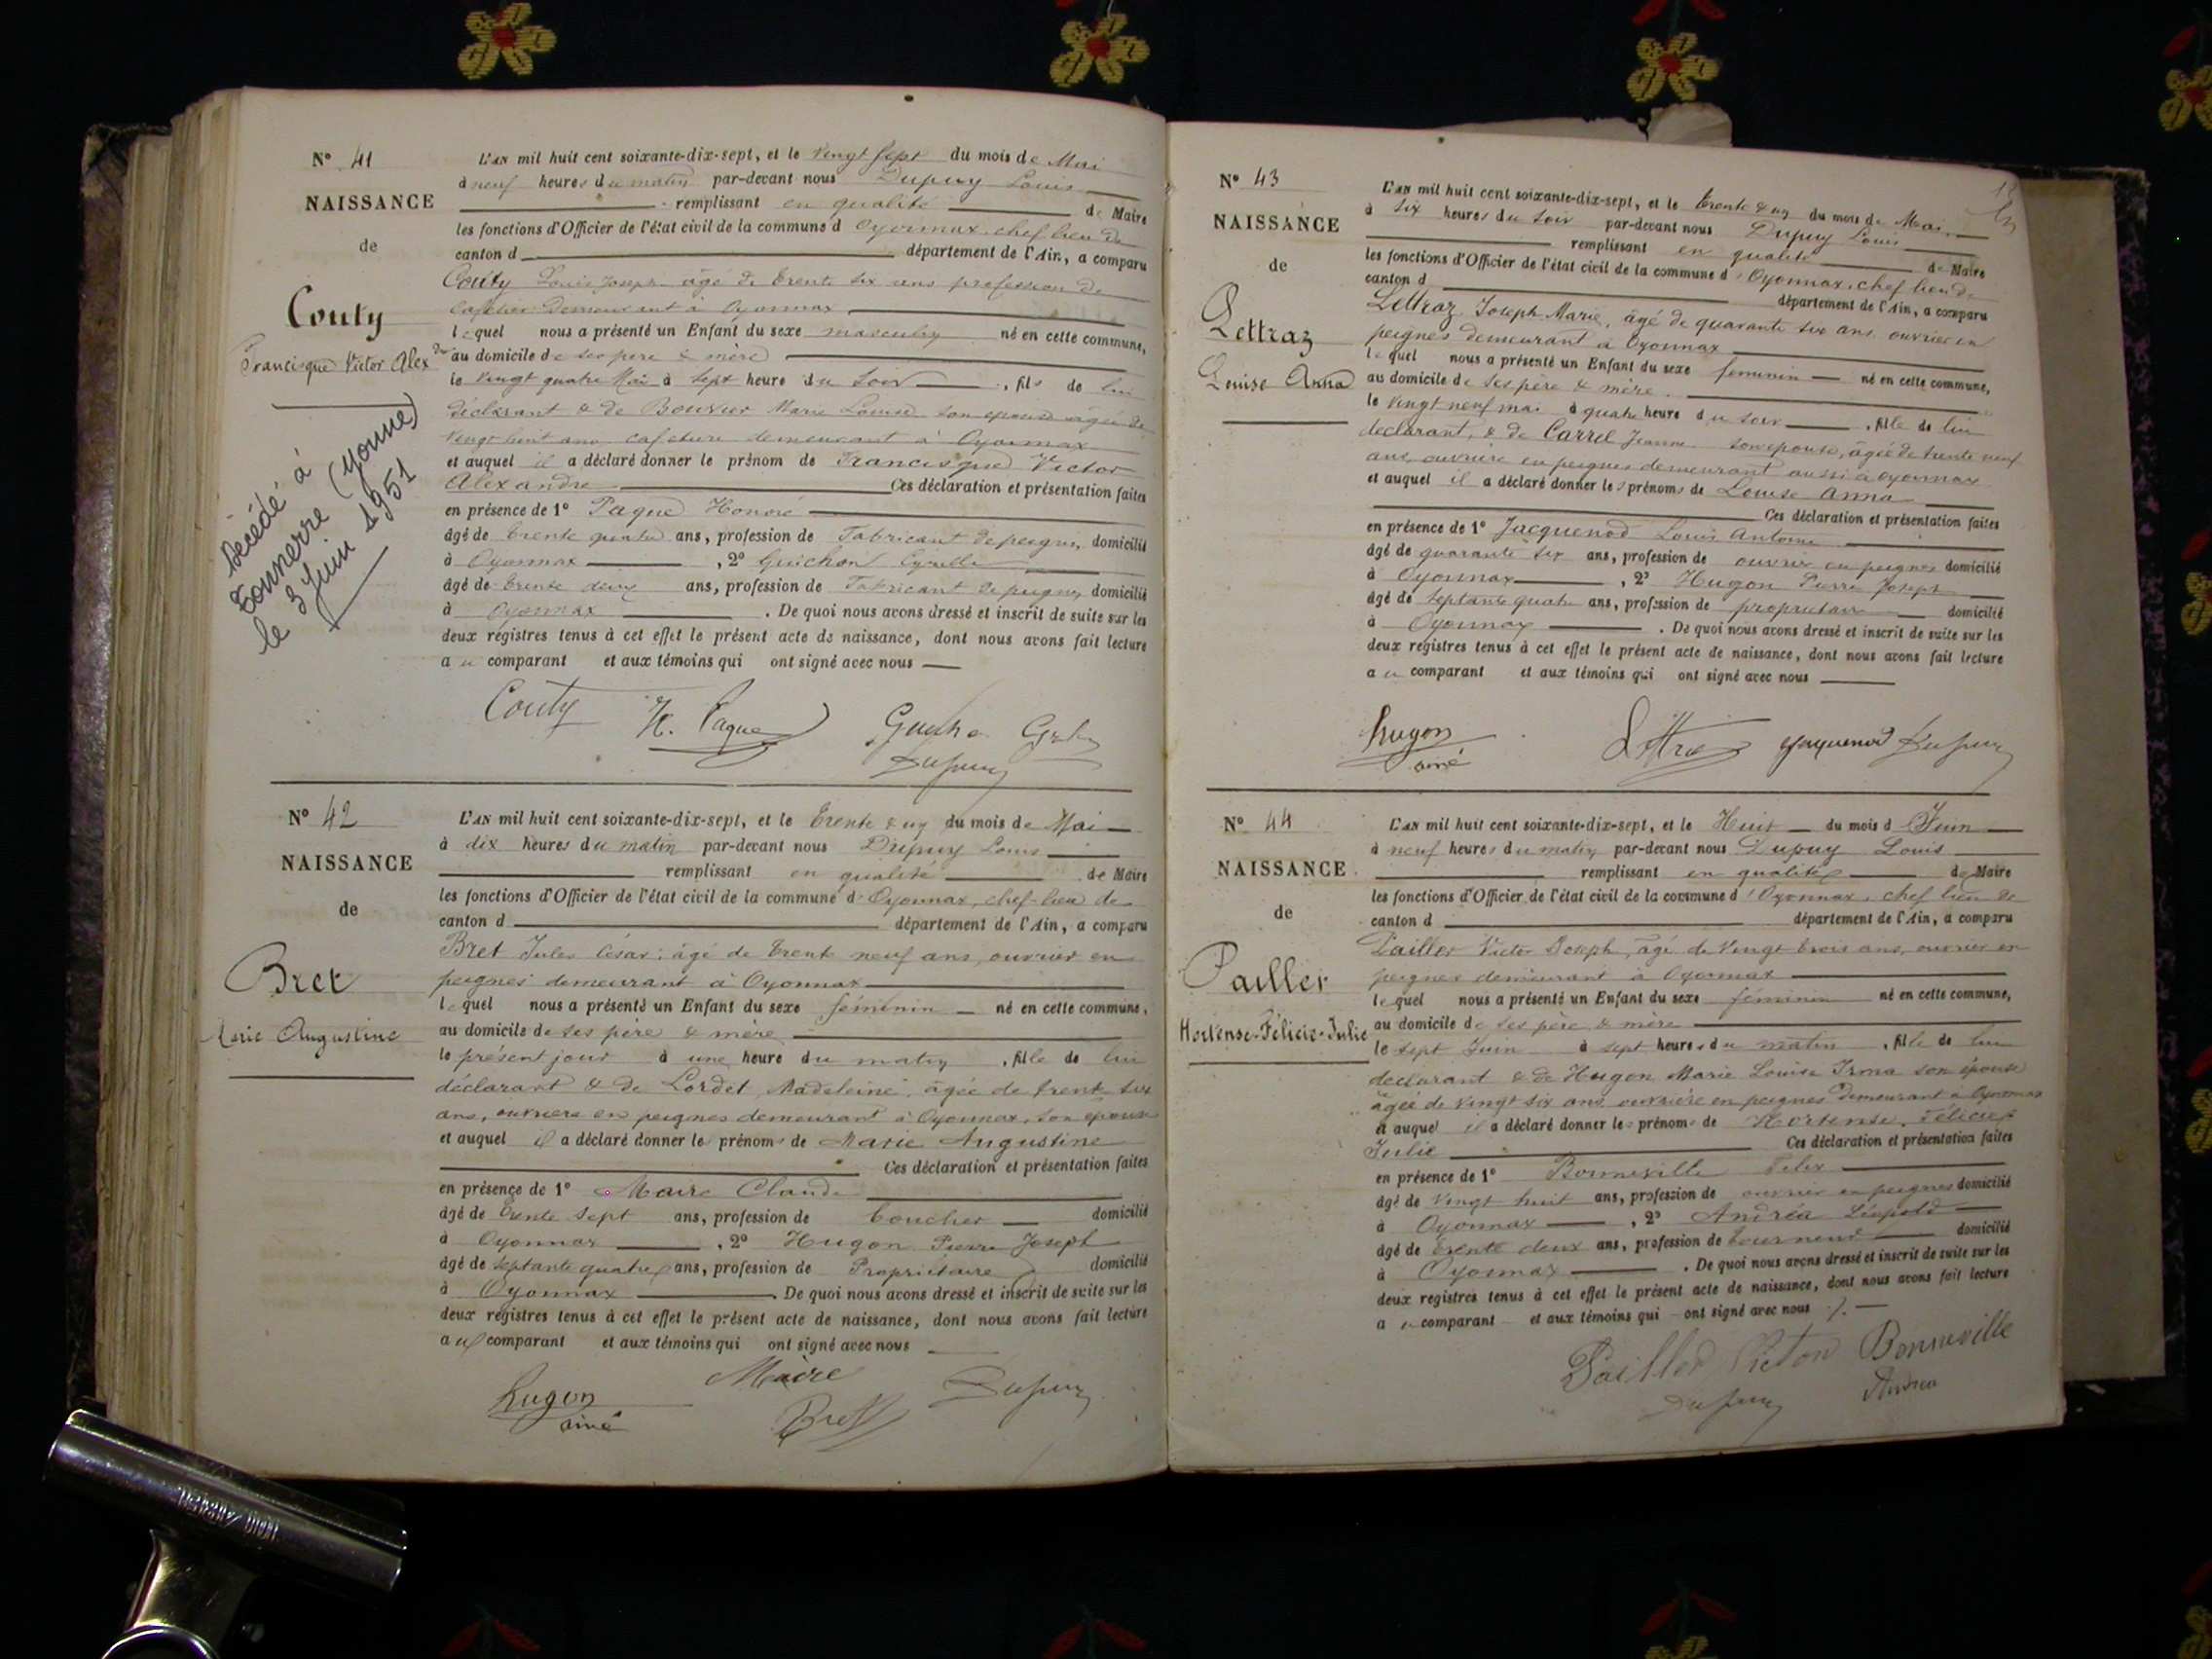 N° 41
NAISSANCE
de
Couty
Francisque Victor Alex dre
Décédé à
Tonnerre (Yonne)
le 3 Juin 1951
L'AN mil huit cent soixante-dix-sept, et le vingt sept du mois de Mai
à neuf heures du matin par-devant nous Dupuy Louis
remplissant en qualité de Maire
les fonctions d'Officier de l'état civil de la commune d Oyonnax, chef lieu de
canton d département de l'Ain, a comparu
Couty Louis Joseph âgé de trente six ans profession de
cafetier demeurant à Oyonnax
lequel nous a présenté un Enfant du sexe masculin né en cette commune,
au domicile de ses père & mère
le vingt quatre Mai à sept heure du soir, fils de lui
déclarant & de Bouvier Marie Louise son épouse âgée de
vingt huit ans cafetière demeurant à Oyonnax
et auquel il a déclaré donner le prénom de Francisque Victor
Alexandre Ces déclaration et présentation faites
en présence de 1° Paque Honoré
âgé de trente quatre ans, profession de Fabricant de peignes domicilié
à Oyonnax, 2° Guichon Cyrille
âgé de trente deux ans, profession de Fabricant de peignes domicilié
à Oyonnax. De quoi nous avons dressé et inscrit de suite sur les
deux registres tenus à cet effet le présent acte de naissance, dont nous avons fait lecture
au comparant et aux témoins qui ont signé avec nous
Couty H. Paque
Dupuy
N° 42
NAISSANCE
de
Bret
Marie Augustine
L'AN mil huit cent soixante-dix-sept, et le trente & un du mois de Mai
à dix heures du matin par-devant nous Dupuy Louis
remplissant en qualité de Maire
les fonctions d'Officier de l'état civil de la commune d'Oyonnax, chef-lieu de
canton d département de l'Ain, a comparu
Bret Jules César, âgé de trente neuf ans, ouvrier en
peignes demeurant à Oyonnax
lequel nous a présenté un Enfant du sexe féminin né en cette commune,
au domicile de ses père & mère
le présent jour à une heure du matin, fille de lui
déclarant & de Lordet Madeleine, âgée de trente six
ans, ouvrière en peignes demeurant à Oyonnax, son épouse
et auquel il a déclaré donner les prénoms de Marie Augustine
Ces déclaration et présentation faites
en présence de 1° Maire Claude
âgé de trente sept ans, profession de boucher domicilié
à Oyonnax, 2° Hugon Pierre Joseph
âgé de septante quatre ans, profession de Propriétaire domicilié
à Oyonnax De quoi nous avons dressé et inscrit de suite sur les
deux registres tenus à cet effet le présent acte de naissance, dont nous avons fait lecture
au comparant et aux témoins qui ont signé avec nous
Hugon Maire Dupuy
ainé Bret
N° 43
NAISSANCE
de
Lettraz
Louise Anna
L'AN mil huit cent soixante-dix-sept, et le trente & un du mois de Mai
à six heures du soir par-devant nous Dupuy Louis
remplissant en qualité de Maire
les fonctions d'Officier de l'état civil de la commune d'Oyonnax, chef lieu de
canton d département de l'Ain, a comparu
Lettraz Joseph Marie, âgé de quarante six ans, ouvrier en
peignes demeurant à Oyonnax
lequel nous a présenté un Enfant du sexe féminin né en cette commune,
au domicile de ses père & mère
le vingt neuf mai à quatre heure du soir, fille de lui
déclarant, & de Carrel Jeanne son épouse, âgée de trente neuf
ans, ouvrière en peignes demeurant aussi à Oyonnax
et auquel il a déclaré donner les prénoms de Louise Anna
Ces déclaration et présentation faites
en présence de 1° Jacquenod Louis Antoine
âgé de quarante six ans, profession de ouvrier en peignes domicilié
à Oyonnax, 2° Hugon Pierre Joseph
âgé de septante quatre ans, profession de propriétaire domicilié
à Oyonnax. De quoi nous avons dressé et inscrit de suite sur les
deux registres tenus à cet effet le présent acte de naissance, dont nous avons fait lecture
au comparant et aux témoins qui ont signé avec nous
Hugon Jacquenod Dupuy
ainé
N° 44
NAISSANCE
de
Pailler
Hortense-Félicie-Julie
L'AN mil huit cent soixante-dix-sept, et le Huit du mois d Juin
à neuf heures du matin par-devant nous Dupuy Louis
remplissant en qualité de Maire
les fonctions d'Officier de l'état civil de la commune d'Oyonnax, chef lieu de
canton d département de l'Ain, a comparu
Pailler Victor Joseph, âgé de vingt trois ans, ouvrier en
peignes demeurant à Oyonnax
lequel nous a présenté un Enfant du sexe féminin né en cette commune,
au domicile de ses père & mère
le sept Juin à sept heures du matin, fille de lui
déclarant & de Hugon Marie Louise Irma son épouse
âgée de vingt six ans ouvrière en peignes demeurant à Oyonnax
et auquel il a déclaré donner les prénoms de Hortense, Félicie,
Julie Ces déclaration et présentation faites
en présence de 1° Bonneville Felix
âgé de vingt huit ans, profession de ouvrier en peignes domicilié
à Oyonnax, 2° Andréa Léopold
âgé de trente deux ans, profession de tourneur domicilié
à Oyonnax. De quoi nous avons dressé et inscrit de suite sur les
deux registres tenus à cet effet le présent acte de naissance, dont nous avons fait lecture
au comparant et aux témoins qui ont signé avec nous
Pailler Victor Bonneville
Dupuy Andréa